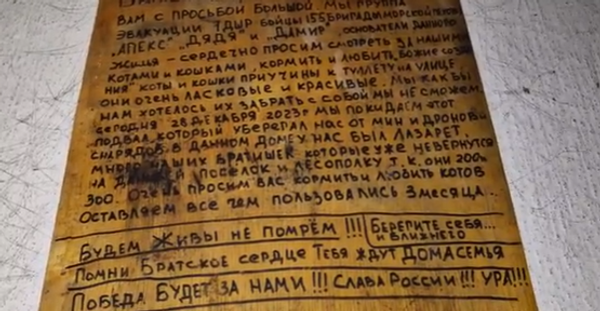 Вам с просьбой большой мы группа
эвакуации ТДИР бойцы 155 бригады морской пехоты
"АПЕКС" "ДЯДЯ" и "ДАМИР", основатели данного
жилья – сердечно просим смотреть за нашими
котами и кошками, кормить и любить, божие созда
ния" коты и кошки приучины к туплету на улице
они очень ласковые и красивые. Мы как бы
нам хотелось их забрать с собой мы не сможем,
сегодня 28 декабря 2023г мы покидаем этот
подвал, который уберегал нас от мин и дронов и
снарядов. В данном доме у нас был лазарет,
много наших братишек которые уже невернутся
на посёлок и лесополку т.к. они 200е
300. Очень просим вас кормить и любить котов
Оставляем все чем пользовались 3 месяца...
Будем живы не помрём !!! Берегите себя...
и ближнего
Помни Братское сердце Тебя ждут дома семья
Победа будет за нами !!! Слава России !!! УРА!!!